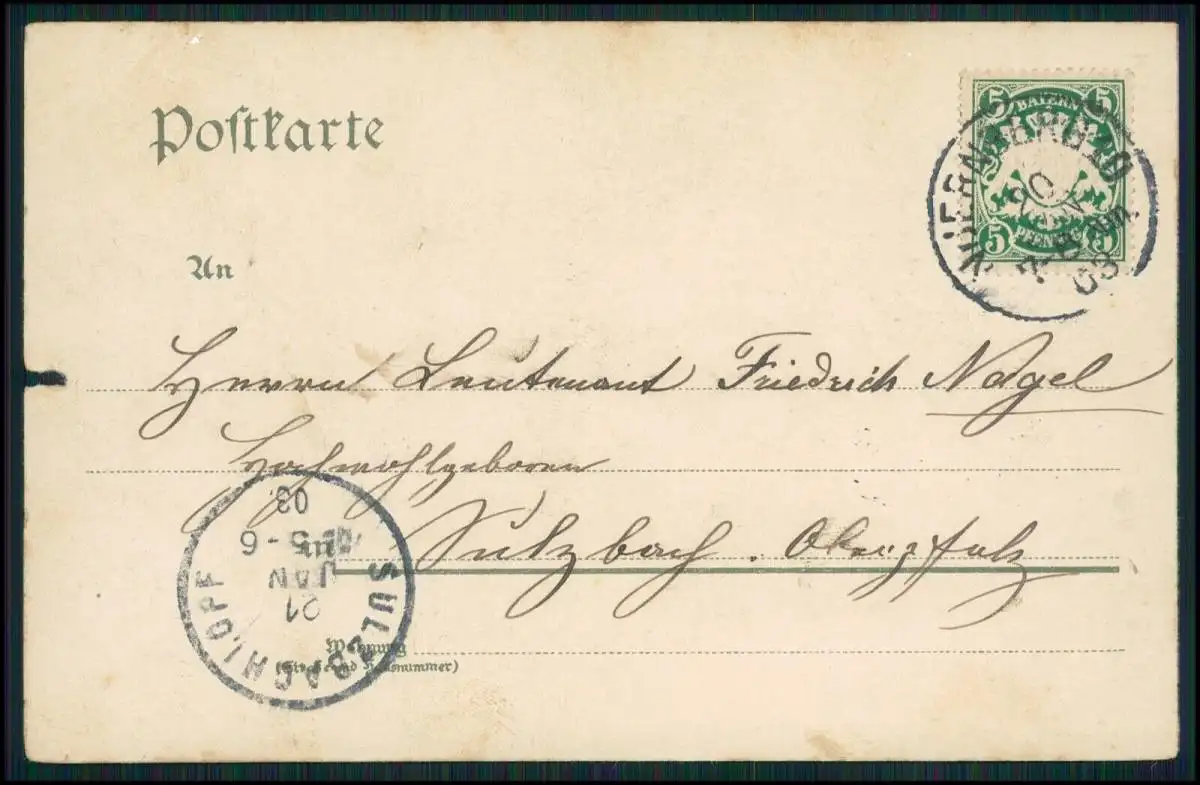 Postkarte
5 5
BAYERN
PFENNIG
5 5
NUERNBERG 10
20
JAN
03
An
Herrn Leutenant Friedrich Nagel
Hochwohlgeboren
in Sulzbach. Oberpfalz
SULZBACH I.OPF
21
JAN
5-6
03
Wohnung
(Straße und Hausnummer)